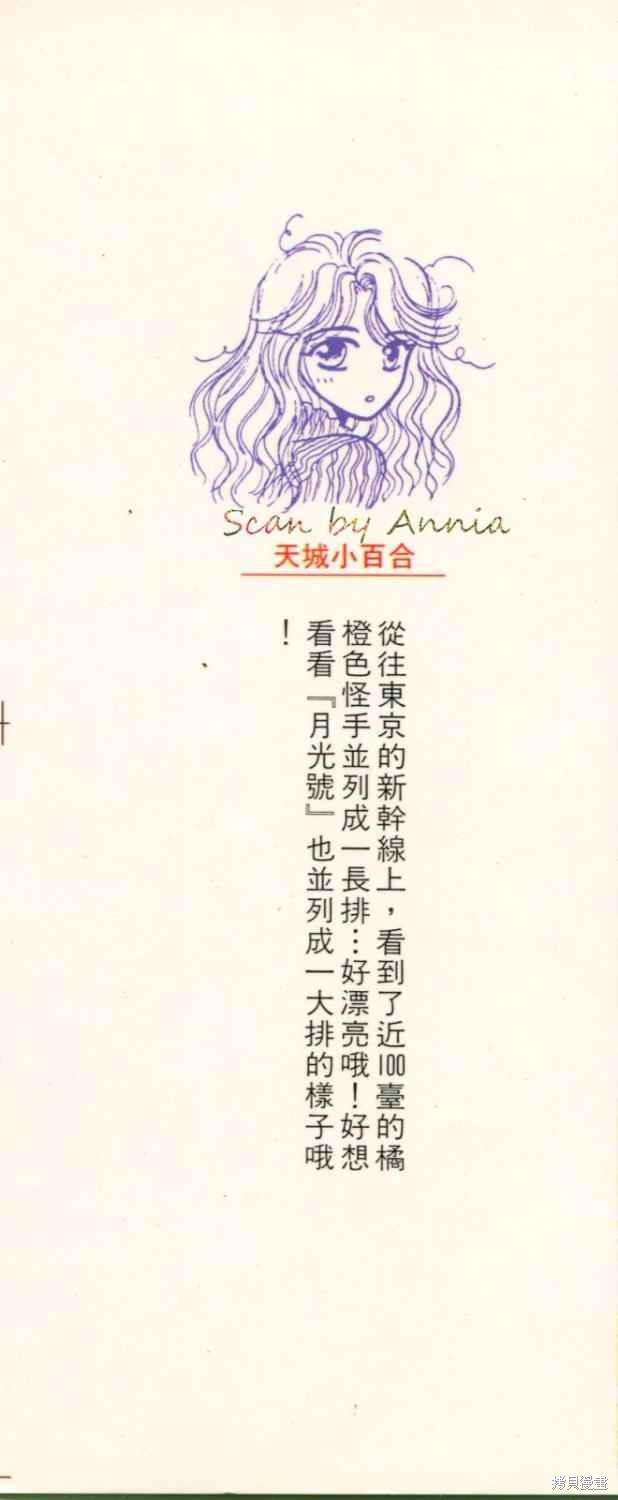 Scan by Annia
天城小百合
從往東京的新幹線上，看到了近100臺的橘
橙色怪手並列成一長排…好漂亮哦！好想
看看『月光號』也並列成一大排的樣子哦
！
拷貝漫畫